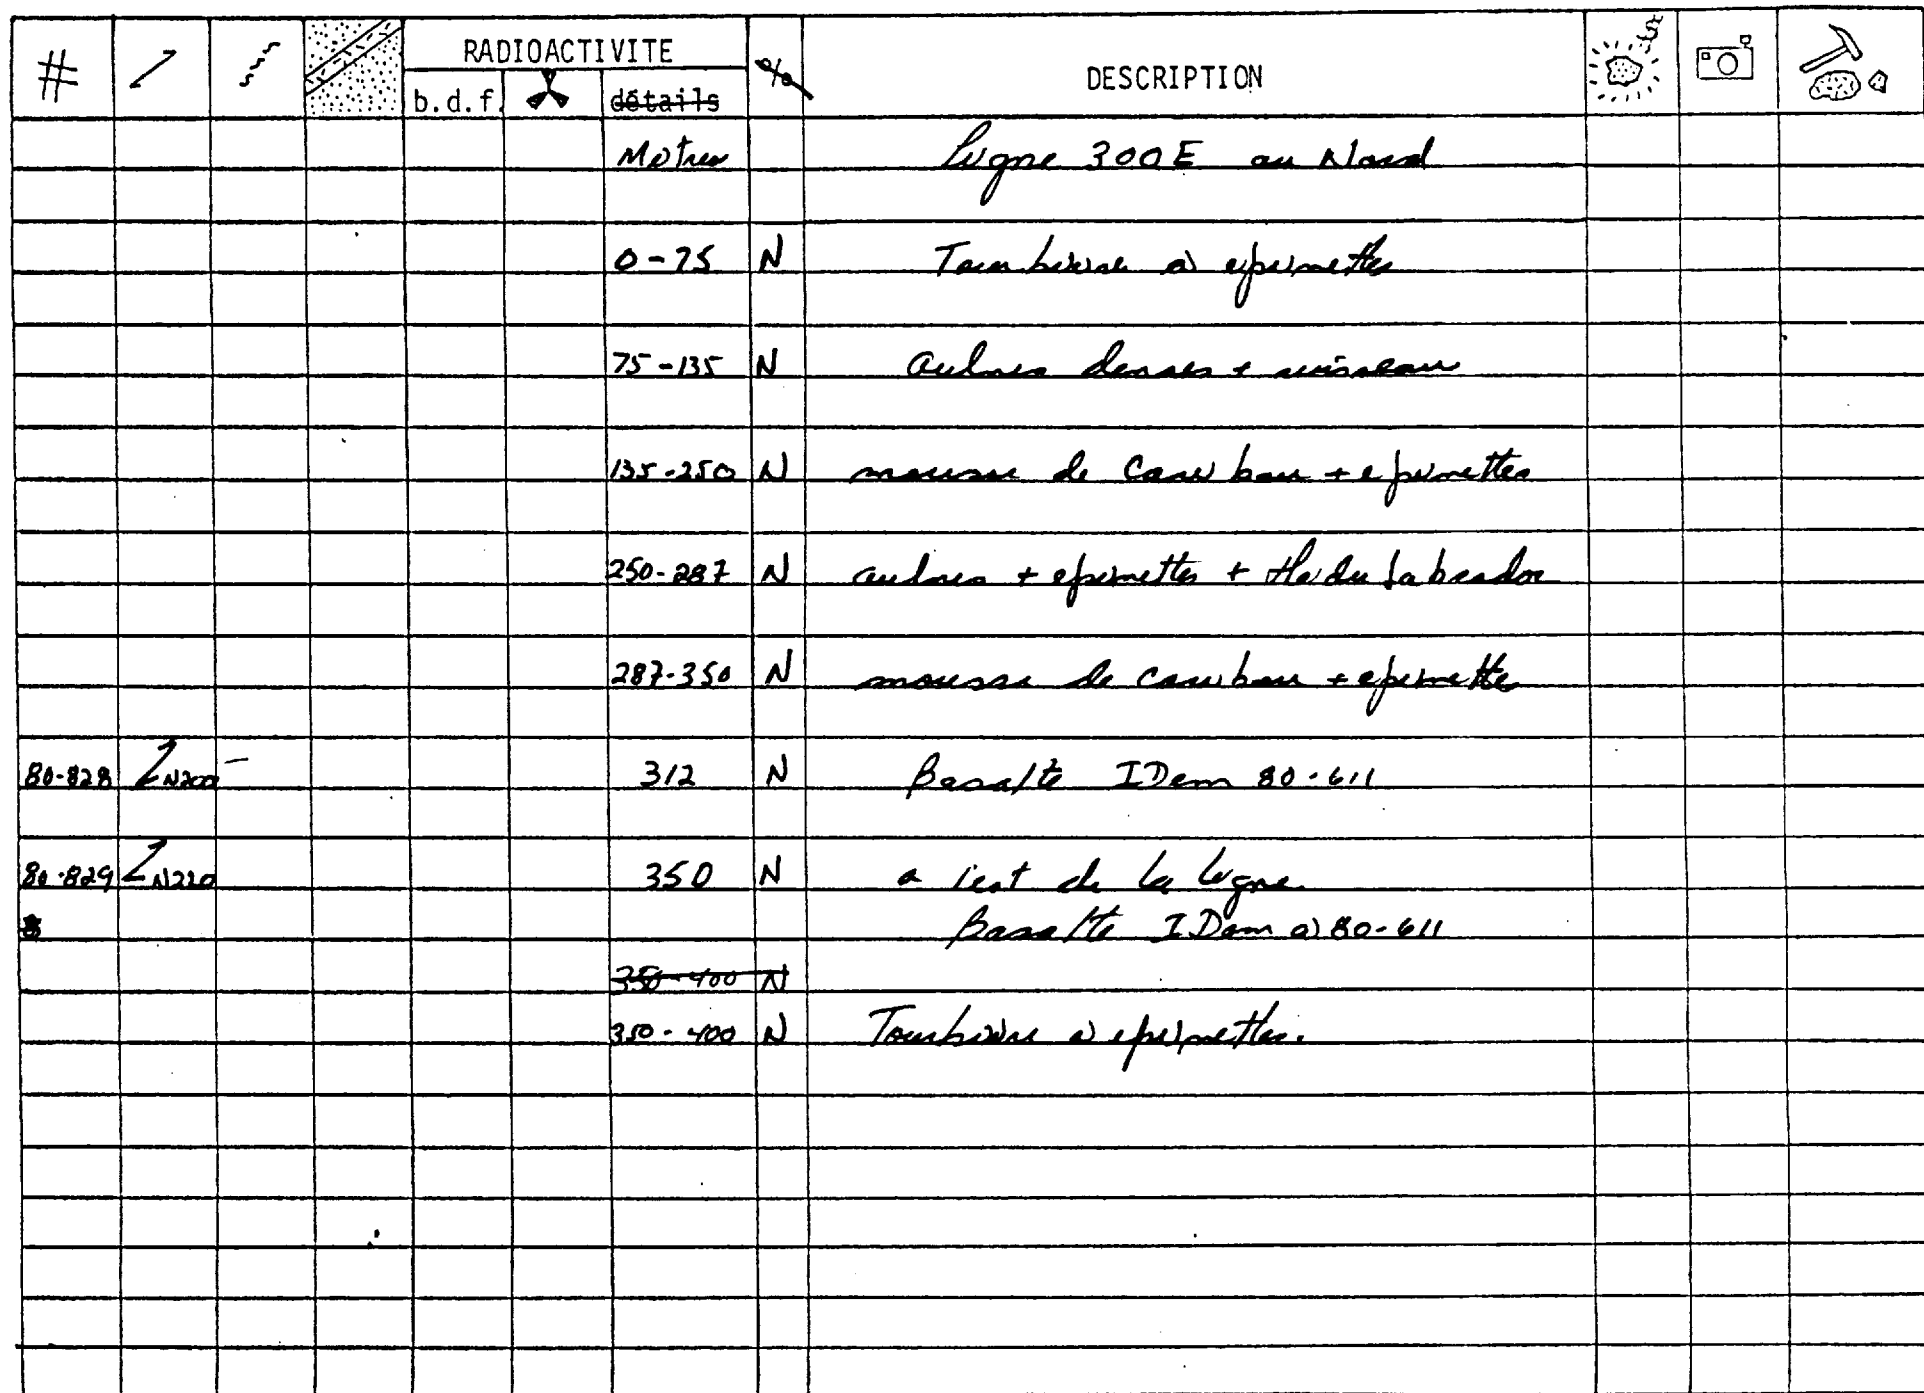 # RADIOACTIVITE % DESCRIPTION
b.d.f. détails
Metres Ligne 300E au Nord
0-75 N Tourbière à epinettes
75-135 N aulnes denses + ruisseau
135-250 N mousse de Caribou + epinettes
250-287 N aulnes + epinettes + thé du Labrador
287-350 N mousse de caribou + epinettes
80-828 N200 312 N Basalte IDem 80-611
80-829 N220 350 N a l'est de la ligne
Basalte IDem à 80-611
350-400 N
350-400 N Tourbière à epinettes.